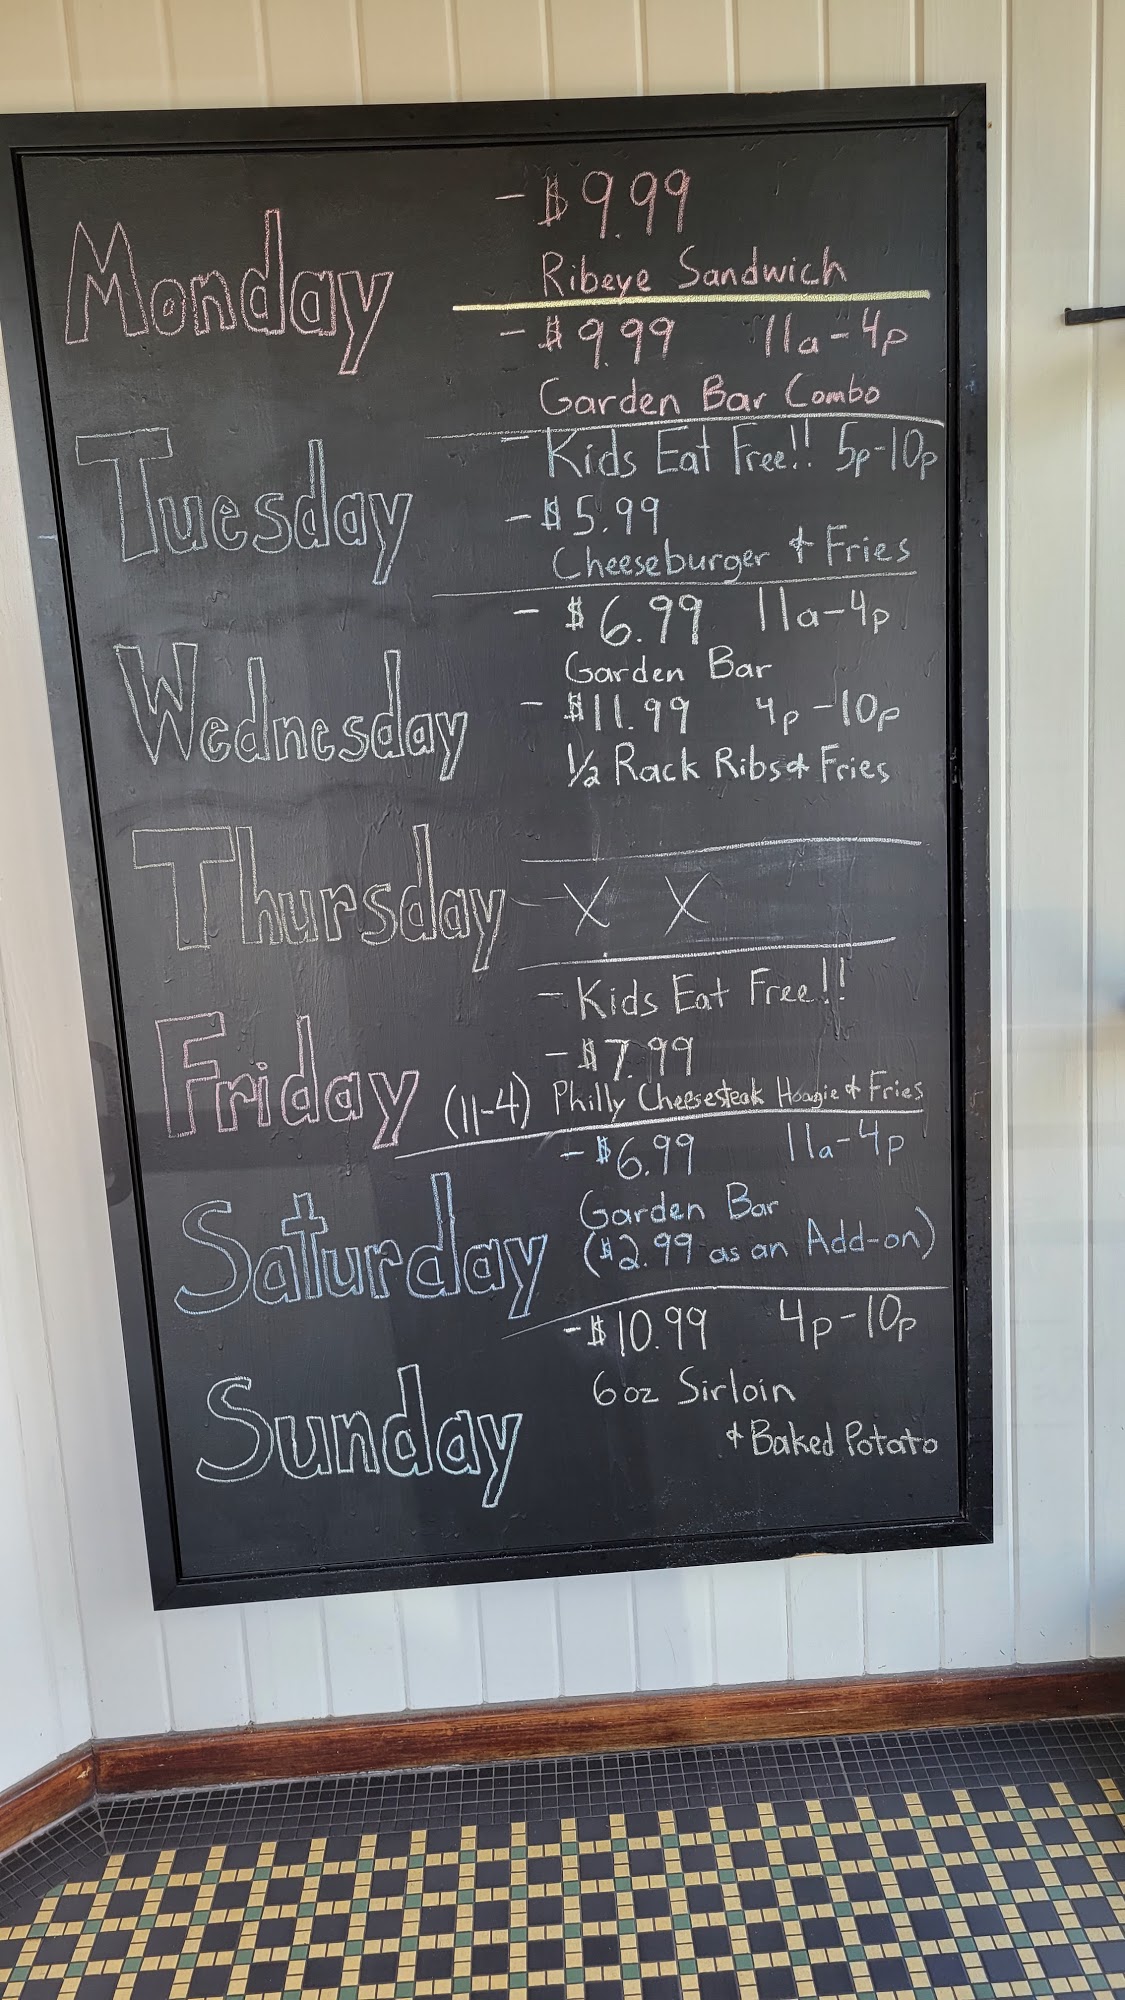 Monday
- $9.99
Ribeye Sandwich
- $9.99 11a-4p
Garden Bar Combo
Tuesday
- Kids Eat Free!! 5p-10p
- $5.99
Cheeseburger & Fries
Wednesday
- $6.99 11a-4p
Garden Bar
- $11.99 4p-10p
1/2 Rack Ribs & Fries
Thursday - X X
Friday (11-4)
- Kids Eat Free!!
- $7.99
Philly Cheesesteak Hoagie & Fries
Saturday
- $6.99 11a-4p
Garden Bar
($2.99 as an Add-on)
Sunday
- $10.99 4p-10p
6 oz Sirloin
& Baked Potato